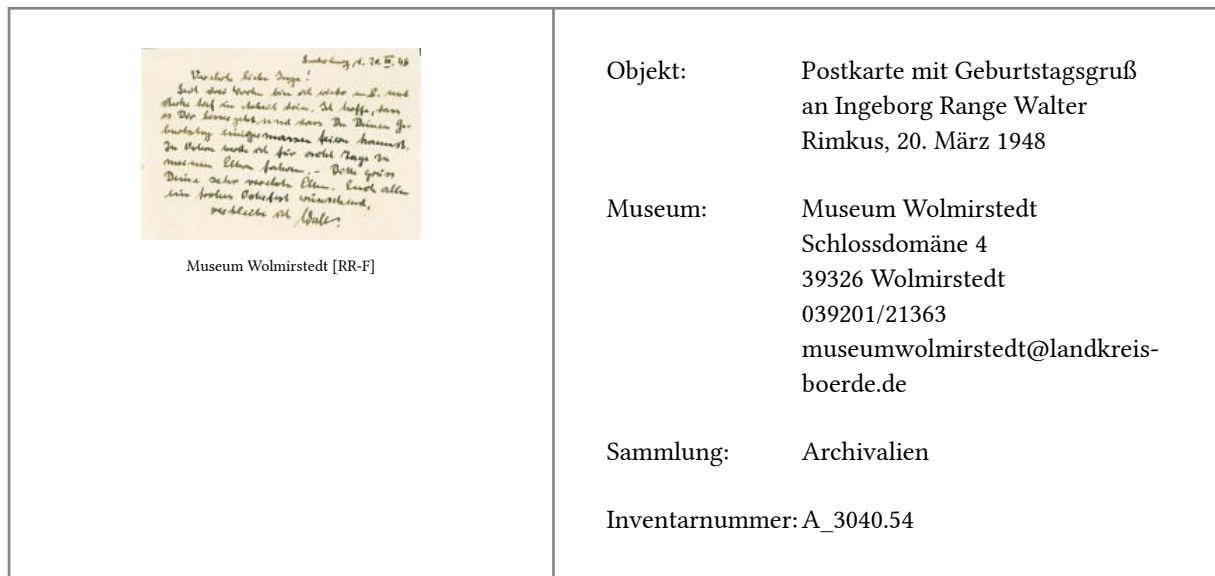 d. 20. III. 48
Verehrte liebe Inge!
Seit drei Wochen bin ich wieder in B. und
stecke tief in Arbeit drin. Ich hoffe, dass
es Dir besser geht und dass Du Deinen Ge-
burtstag einigermassen feiern kannst.
Zu Ostern werde ich für acht Tage zu
meinen Eltern fahren. - Bitte grüss
Deine sehr verehrten Eltern. Euch allen
ein frohes Osterfest wünschend,
verbleibe ich
Museum Wolmirstedt [RR-F]
Objekt: Postkarte mit Geburtstagsgruß
an Ingeborg Range Walter
Rimkus, 20. März 1948
Museum: Museum Wolmirstedt
Schlossdomäne 4
39326 Wolmirstedt
039201/21363
museumwolmirstedt@landkreis-
boerde.de
Sammlung: Archivalien
Inventarnummer: A_3040.54